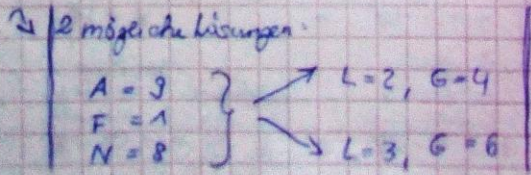 2 mögliche Lösungen:
A = 9
F = 1
N = 8
L = 2, G = 4
L = 3, G = 6